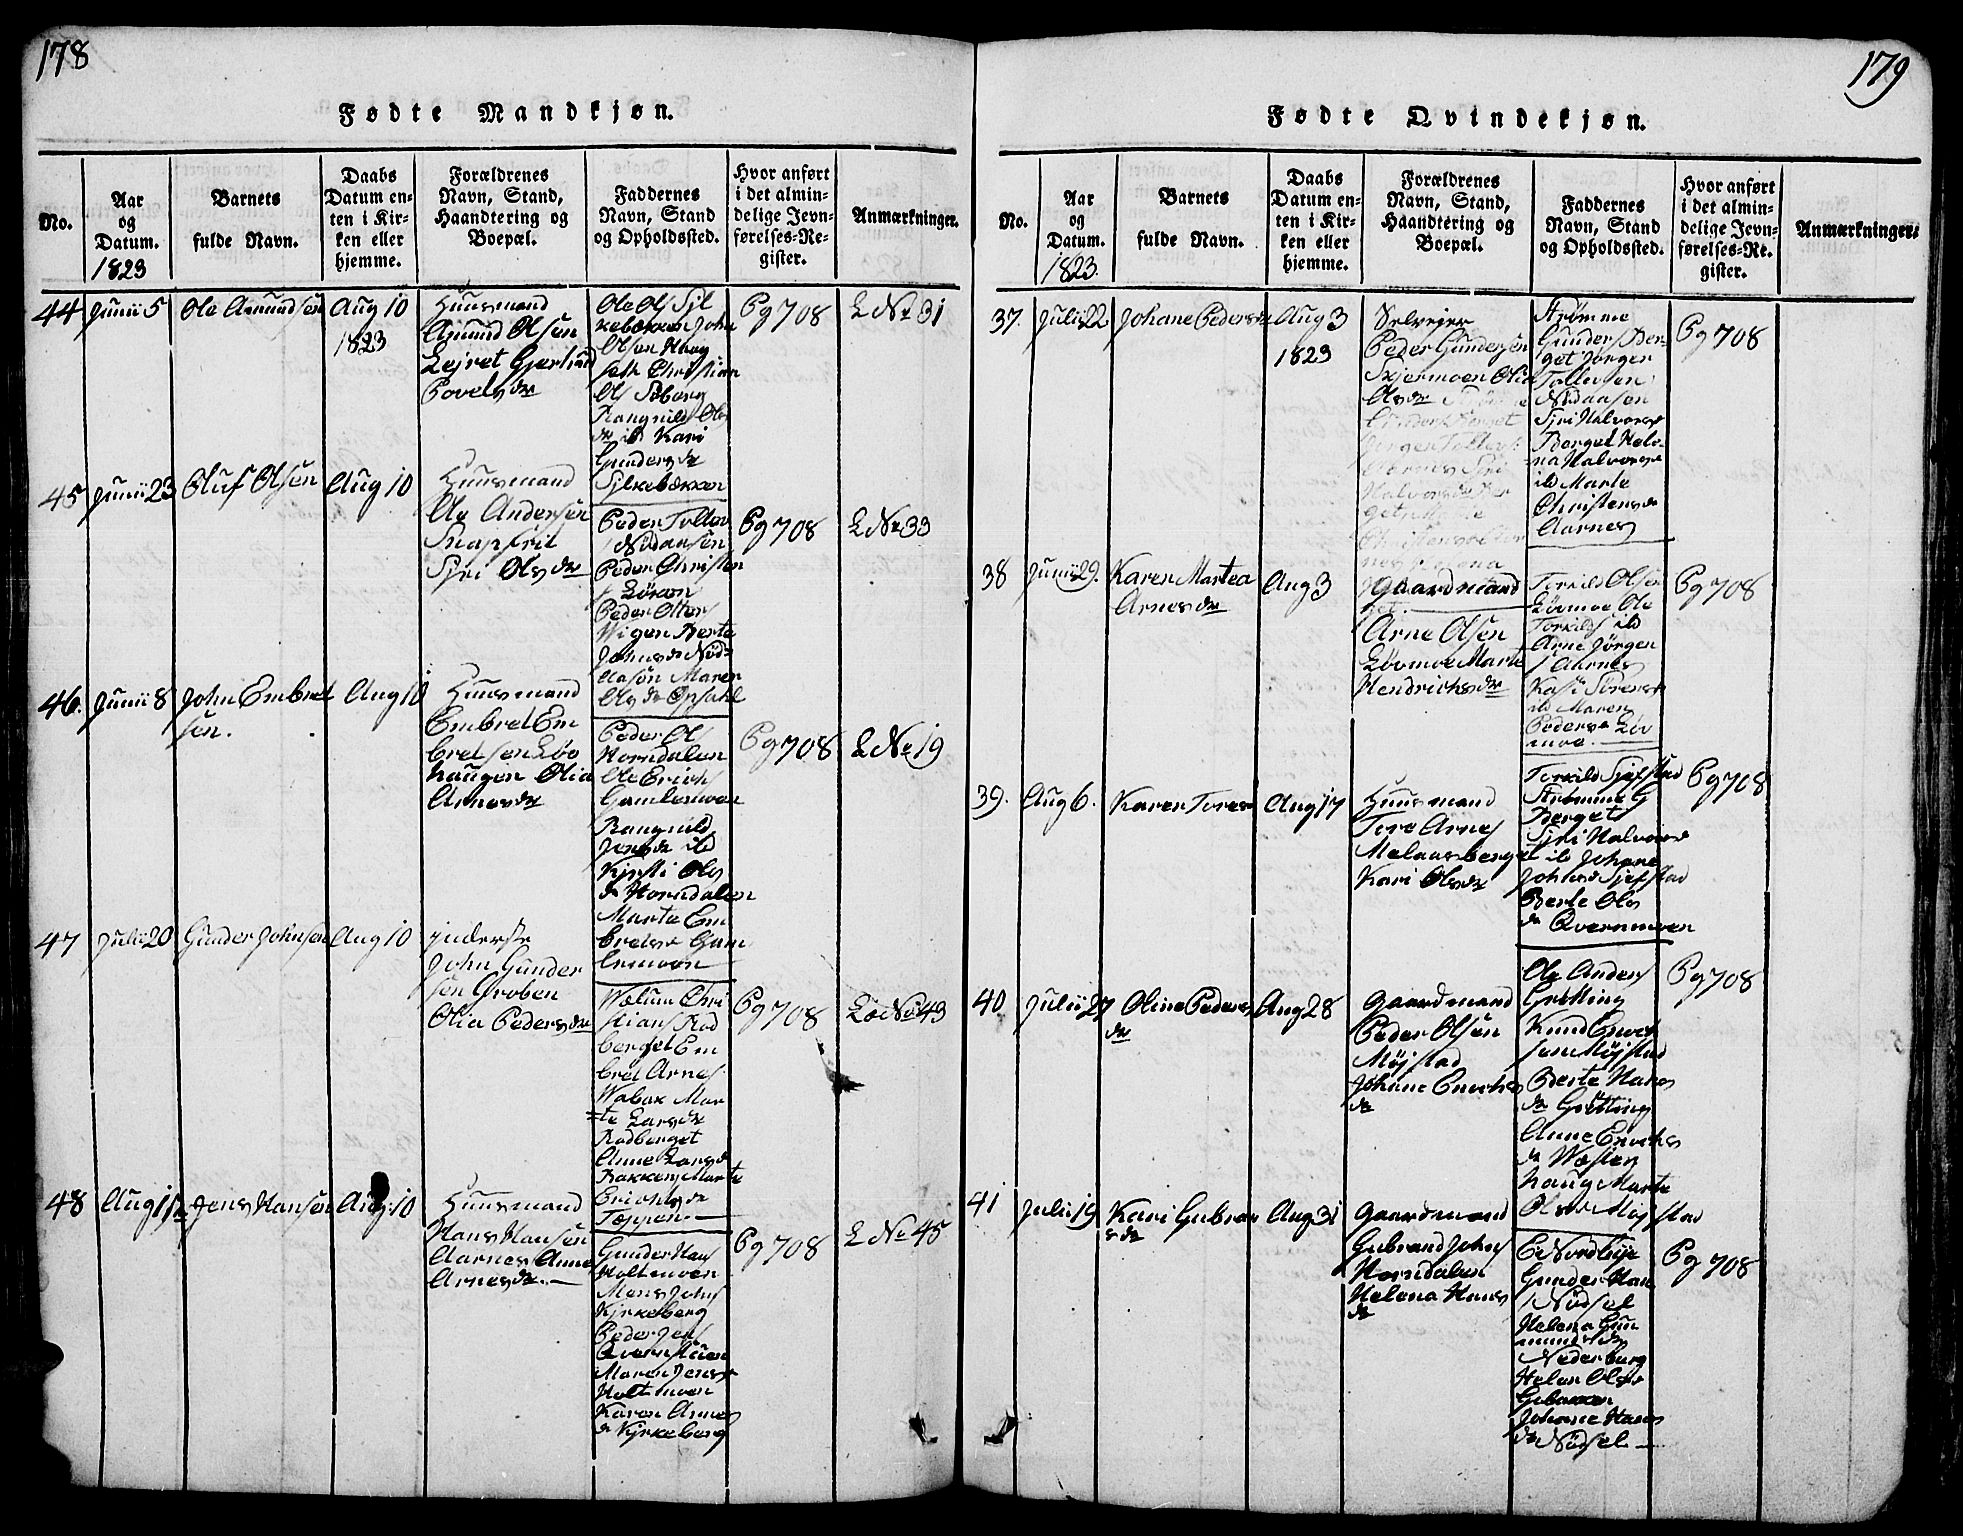 178
Fødte Mandkjøn.
No.
Aar
og
Datum.
1823
Barnets
fulde Navn.
Daabs
Datum en-
ten i Kir-
ken eller
hjemme.
Forældrenes
Navn, Stand,
Haandtering og
Boepæl.
Faddernes
Navn, Stand
og Opholdssted.
Hvor anført
i det almin-
delige Jevn-
førelses-Re-
gister.
Anmærkninger.
44
Junii 5
Ole Amundsen
Aug 10
1823
Huusmand
Amund Olsen
Lejret Gjertrud
Povelsdr
Ole Ols Sil
kebækken John
Olsen Haag
seth Christian
Ols Søberg
Rangnild Ols
dr ib Kari
Gundersdr
Silkebækken
Pg 708
L No 31
45
Junii 23
Oluf Olsen
Aug 10
Huusmand
Ole Andersen
Snapfrit
Siri Olsdr
Peder Tollev
Nidaasen
Peder Christen
Peder Otters
Wigen Berte
Johnsdr Nid
aasen Maren
Olsdr Opsahl
Pg 708
L No 33
46.
Junii 8
John Embret
sen.
Aug 10
Huusmand
Embret Em
bretsen Løv
haugen Olia
Arnesdr
Peder Ols
Horndalen
Ole Erichs
Gamlemoen
Rangnild
Jensdr ib
Kirsti Ols
dr Horndalen
Marte Em
bretsdr Gam
lemoen
Pg 708
L No 19
47
Julii 20
Gunder Johnsen
Aug 10
Inderste
John Gunder
sen Groben
Olia Pedersdr
Chri
stians Rød
berget Em
bret Arnes
Mar
te Larsdr
Rødberget
Anne Larsdr
Bakken Marte
Erichsdr
Toppen
Pg 708
Lo No 43
48
Aug 1
Jens Hansen
Aug. 10
Huusmand
Hans Hansen
Aarnes Anne
Arnesdr.
Gunder Hans
Holtmoen
Mons Johs
Kirkeberg
Peder Jens
Qvernstuen
Maren Jensdr
Holtmoen
Karen Arnes
dr Kirkeberg
Pg 708
L No 45
179
Fødte Qvindekjøn.
No.
Aar
og
Datum.
1823.
Barnets
fulde Navn.
Daabs
Datum en-
ten i Kir-
ken eller
hjemme.
Forældrenes
Navn, Stand,
Haandtering og
Boepæl.
Faddernes
Navn, Stand
og Opholdssted.
Hvor anført
i det almin-
delige Jevn-
førelses-Re-
gister.
Anmærkninger.
37.
Julii 22
Johane Pedersdr
Aug 3
1823
Selvejer
Peder Gundersen
Skjermoen Olia
Olsdr
Strømme
Gunders Ber
get Jørgen
Tollevsen
Nidaasen
Siri Halvorsdr
Berget Hele
na Halvorsdr
ib Marte
Christensdr
Aarnes
Pg 708
38
Junii 29.
Karen Martea
Arnesdr
Aug 3
Gaardmand
Arne Olsen
Løvmoe Marte
Hendrichsdr
Torkild Olsen
Løvmoe Ole
Torkilds ib
Arne Jørgen
s Aarnes
Kasi Sørensdr
ib Maren
Pedersdr Løv
moe.
Pg 708
39.
Aug 6.
Karen Toresdr
Aug 17
Huusmand
Tore Arnes
Melaasberget
Kari Olsdr
Torkild Sjefstad
Strømme G
Berget
Siri Halvorsdr
ib Johane
Johnsdr Sjefstad
Berte Ols
dr Qvernmoen
Pg 708
40
Julii 27
Oline Peders
dr
Aug 28
Gaardmand
Peder Olsen
Møjstad
Johane Enochs
dr
Ole Anders
Grøtting
Knud Enoch
sen Møjstad
Berte Hans
dr Grøtting
Anne Enochs
dr Wæsten
haug Marte
Olsdr Møjstad
Pg 708
41
Julii 19
Kari Gubran
sdr
Aug 31
Gaardmand
Gubrand Johs
Horndalen
Helena Hans
dr
E Nordbye
Gunder Han
s Nødsel
Helena Gun
mundsdr
Nederberg
Helen Olsdr
Gubakken
Johane Hans
dr Nødsel
Pg 708